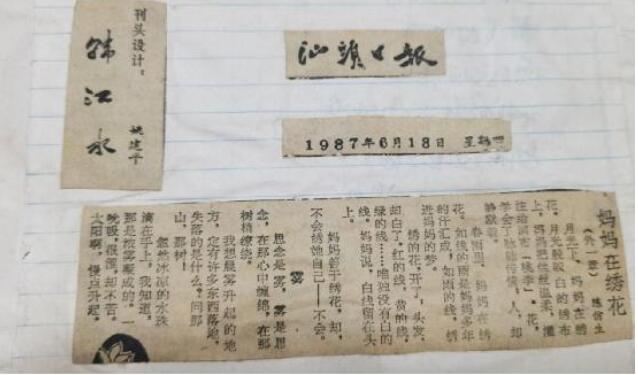 刊头设计：
姚建平
韩江水
汕頭日报
1987年6月18日 星期四
妈妈在绣花
（外一章）
月光下，妈妈在绣
花，月光般皎白的绣布
上，妈妈把丝丝温柔，灌
“桃李”，花，
学会了脉脉传情，人，却
静默着。
春雨里，妈妈在绣
花，如线的雨是妈妈多年
的汗汇成，如雨的线，绣
进妈妈的梦。
绣的花，开了，头发，
却白了，红的线，黄的线，
绿的线……唯独没有白的
线，妈妈说，白线留在头
上。
妈妈善于绣花，却，
不会绣她自己——不会。
雾
思念是雾，雾是思
念，在那心中缠绵，在那
树梢缭绕。
我想晨雾升起的地
方，定有许多东西落地，
失落的是什么？问那
山，那树！
忽然冰凉的水珠
滴在手上，我知道，
那是浓雾凝成的。一
吮吸，很涩，却不苦。
太阳啊，慢点升起。